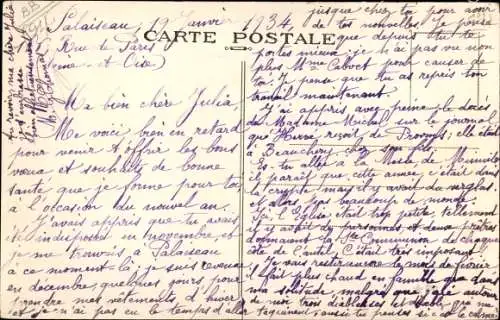 Palaiseau, 19 Janvier 1934
Rue de Paris
Seine-et-Oise)
CARTE POSTALE
Ma bien chère Julia
Me voici bien en retard
pour venir t'offrir les bons
vœux, et souhaits de bonne
santé que je forme pour toi
à l'occasion du nouvel an.
J'avais appris que tu avais
été indisposée en novembre, et
je me trouvais à Palaiseau
à ce moment là, je suis revenue
en décembre, quelques jours pour
prendre mes vêtements d'hiver
et je n'ai pas eu le temps d'aller
jusque chez toi pour avoir
de tes nouvelles, je pense
que depuis tu te
portes mieux, je n'ai pas vu non
plus Mme Cabort pour causer de
toi. Je pense que tu as repris ton
travail maintenant.
J'ai appris avec peine le décès
de Madame Michel sur le journal
que Hervé reçoit de Provins; elle était
à Beauchery chez son fils.
Es-tu allée à la Messe de Minuit
il paraît que cette année, c'était dans
la crypte mais il y avait du verglas
et alors pas beaucoup de monde.
Ici, l'Eglise était trop petite tellement
il y avait de personnes et deux prêtres
donnaient la Ste Communion de chaque
côté de l'autel c'était très imposant.
Je vais rester encore le mois de février
il fait plus chaud en famille que dans
ma solitude, malgré que
de mon trois diablesses et
taquinent, aussi tu penses si
ma chère Julia